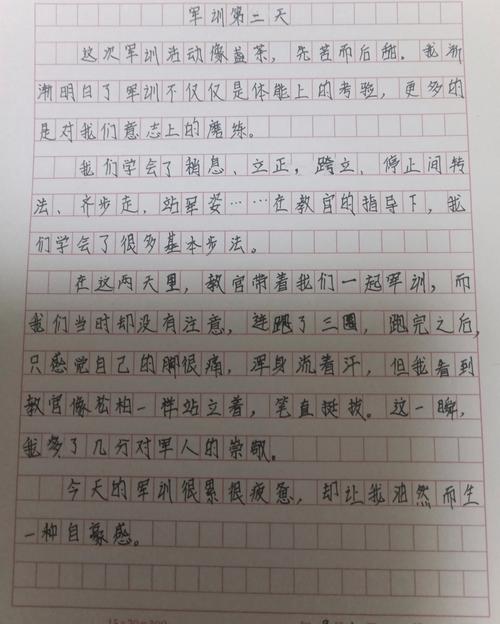 军训第二天
这次军训活动像盖茶，先苦而后甜。我渐
渐明白了军训不仅仅是体能上的考验，更多的
是对我们意志上的磨练。
我们学会了稍息、立正，跨立、停止间转
法、齐步走，站军姿……在教官的指导下，我
们学会了很多基本步法。
在这两天里，教官带着我们一起军训，而
我们当时却没有注意，连跑了三圈，跑完之后，
只感觉自己的脚很痛，浑身流着汗，但我看到
教官像松柏一样站立着，笔直挺拔。这一瞬，
我多了几分对军人的崇敬。
今天的军训很累很疲惫，却让我油然而生
一种自豪感。
15×20=300